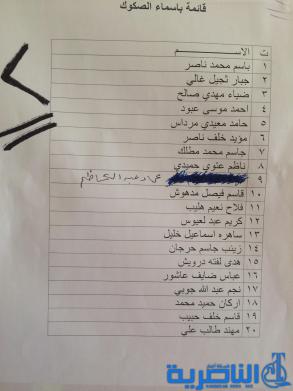 قائمة باسماء الصكوك
ت الاســـــم
١ باسم محمد ناصر
٢ جبار ثجيل غالي
٣ ضياء مهدي صالح
٤ احمد موسى عبود
٥ حامد معيدي مرداس
٦ مؤيد خلف ناصر
٧ جاسم محمد مطلك
٨ ناظم عنوي حميدي
٩ عماد عبد الكاظم
١٠ قاسم فيصل مدهوش
١١ فلاح نعيم هليب
١٢ كريم عبد لعيوس
١٣ ساهره اسماعيل خليل
١٤ زينب جاسم حرجان
١٥ هدى لفته درويش
١٦ عباس ضايف عاشور
١٧ نجم عبد الله جوبي
١٨ اركان حميد محمد
١٩ قاسم خلف حبيب
٢٠ مهند طالب علي
الناصرية